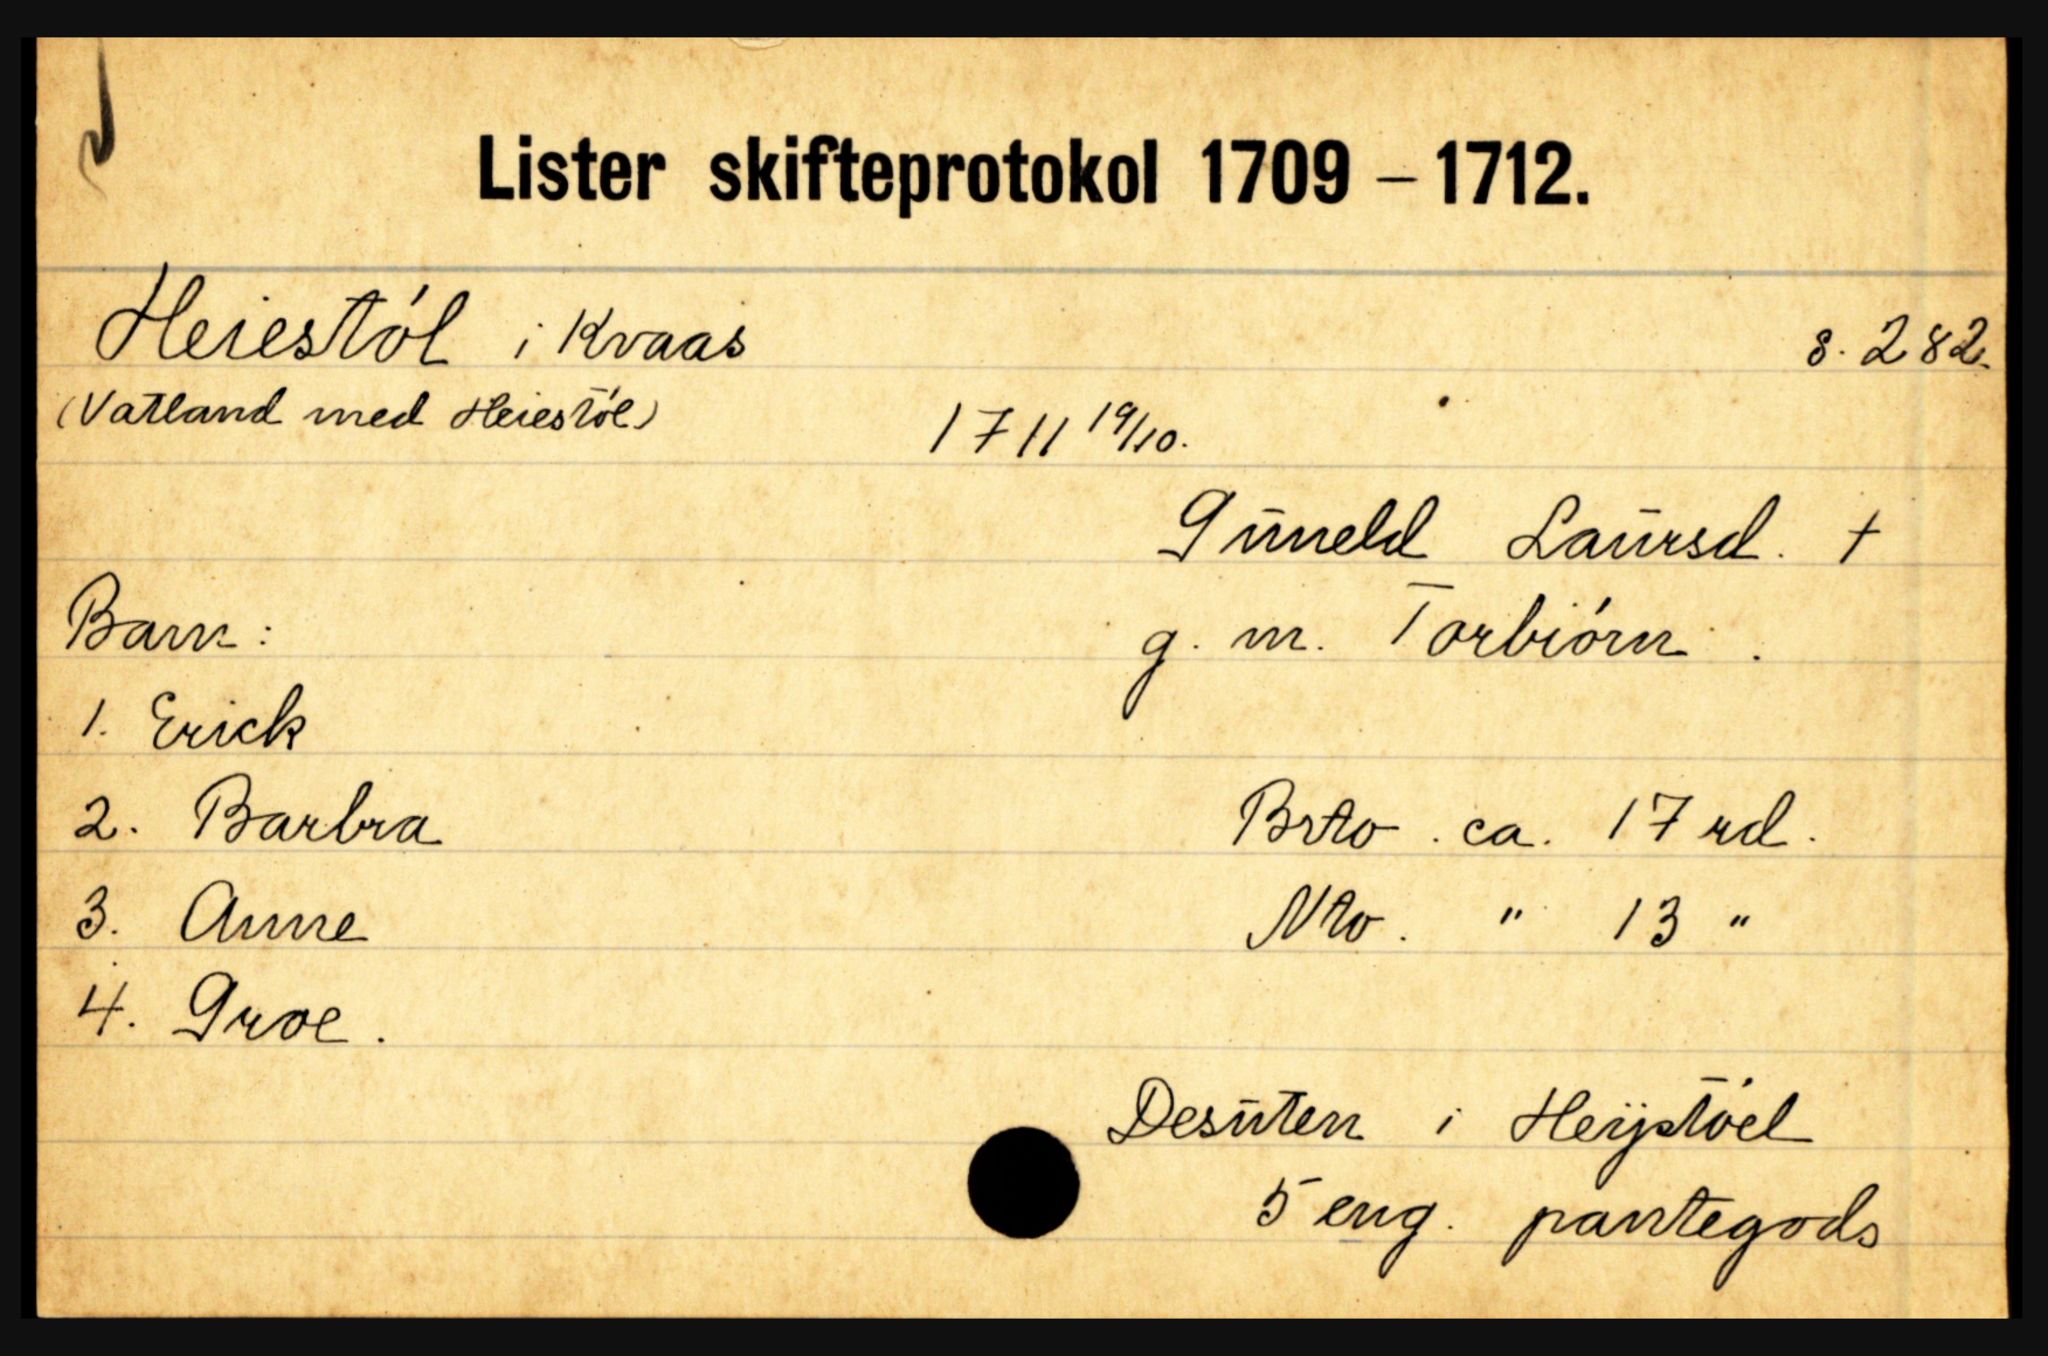 Lister skifteprotokol 1709 – 1712.
Heiestól i Kvaas s. 282.
(Vatland med Heiestól)
1711 19/10.
Guneld Laursd. †
Barn: g. m. Torbiórn.
1. Erick
2. Barbra Brto. ca. 17 rd.
3. Anne Nto. " 13 "
4. Groe.
Desuten i Heijstóel
5 eng. pantegods